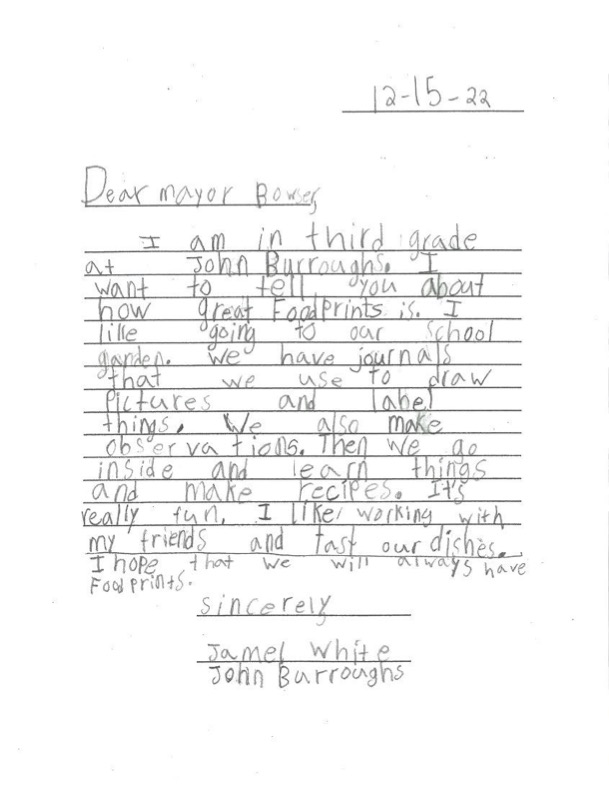 12-15-22
Dear mayor Bowser,
I am in third grade
at John Burroughs. I
want to tell you about
how great FoodPrints is. I
like going to our school
garden. We have journals
that we use to draw
Pictures and label
things. We also make
observations. Then we go
inside and learn things
and make recipes. It's
really fun. I like working with
my friends and tast our dishes.
I hope that we will always have
Food Prints.
sincerely
Jamel White
John Burroughs